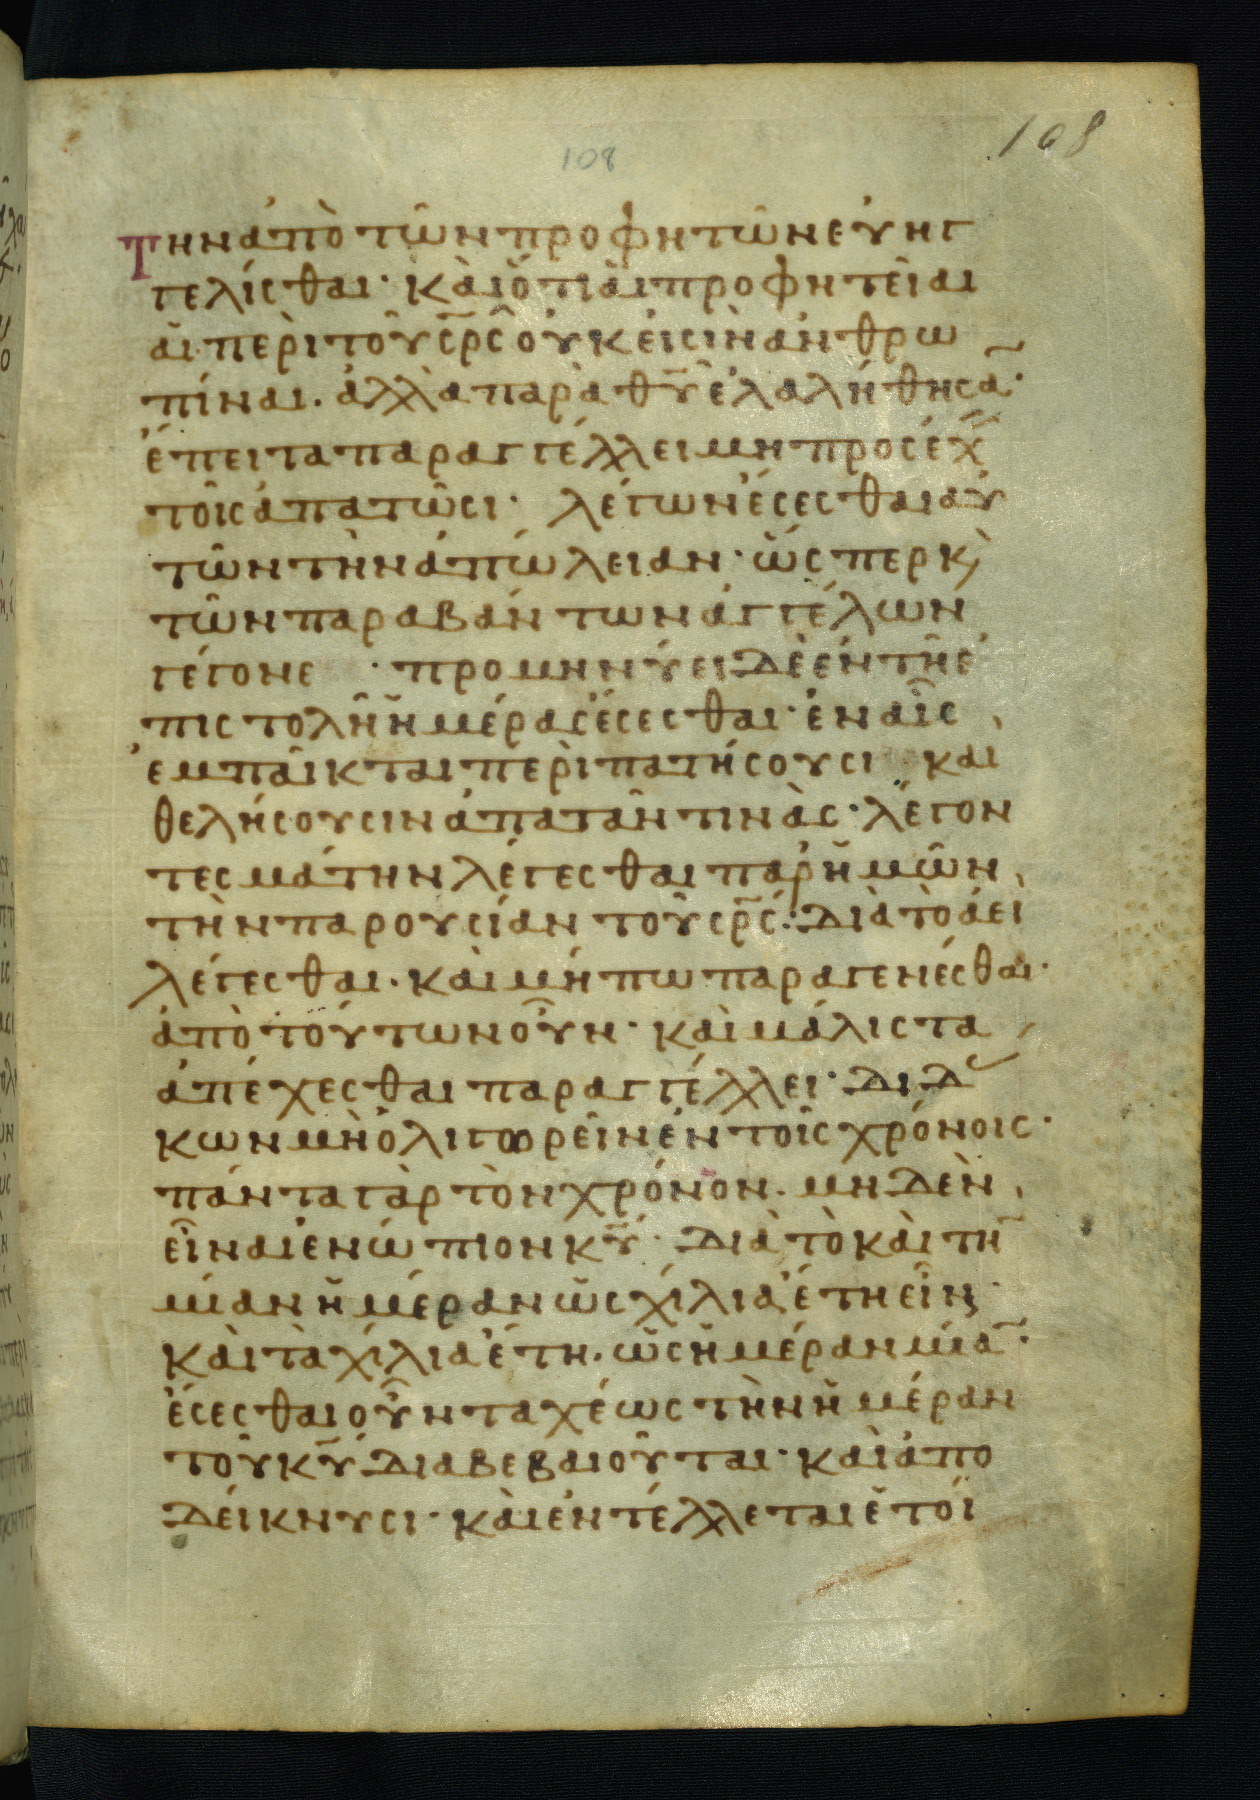 108
108
Τὴν ἀπὸ τῶν προφητῶν εὐηγ
γελίσθαι· καὶ ὅτι ἁι προφητεῖαι
ἁι περὶ τοῦ σ̅ρ̅ς̅ οὐκ ἐισὶν ἀνθρω
πίναι. ἀλλὰ παρὰ θ̅υ̅ ἐλαλήθησα̅·
ἔπειτα παραγγέλλει μὴ προσέχ
τοῖς ἀπατῶσι· λέγων ἔσεσθαι αὐ
τῶν τὴν ἀπώλειαν· ὥσπερ κ̀
τῶν παραβάντων ἀγγέλων
γέγονε · προμηνύει δὲ ἐν τῆ ἐ
πιστολῆ ἡμέρας ἔσεσθαι· ἐν αἷς
ἐμπαῖκται περὶπατήσουσι · καὶ
θελήσουσιν ἀπατᾶν τινὰς· λέγον
τες μάτην λέγεσθαι παρ' ἡμῶν
τὴν παρουσίαν τοῦ σ̅ρ̅ς̅· διὰ τὸ ἀεὶ
λέγεσθαι. καὶ μήπω παραγενέσθαι·
ἀπὸ τούτων οὖν· καὶ μάλιστα
ἀπέχεσθαι παραγγέλλει· διδ
κων μὴ ὀλιγωρεῖν ἐν τοῖς χρόνοις·
πάντα γὰρ τὸν χρόνον. μηδὲν
εἶναι ἐνώπιον κ̅υ̅· διὰ τὸ καὶ τη̅
μίαν ἡμέραν ὡς χίλια ἔτη εἶν
καὶ τὰ χίλια ἔτη. ὡς ἡμέραν μία̅·
ἔσεσθαι οὖν ταχέως τὴν ἡμέραν
τοῦ κ̅υ̅ διαβεβαιοῦται· καὶ ἀπο
δείκνυσι· καὶ ἐντέλλεται ἑτοί